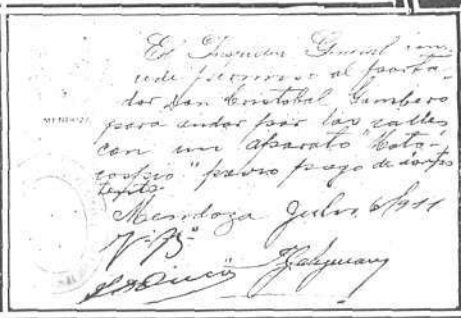 El Inspector General con-
cede permiso al porta-
dor Don Cristobal Gambero
MENDOZA
para andar por las calles
con un aparato "Foto-
"previo pago de
Mendoza Julio 6/911
V° B°